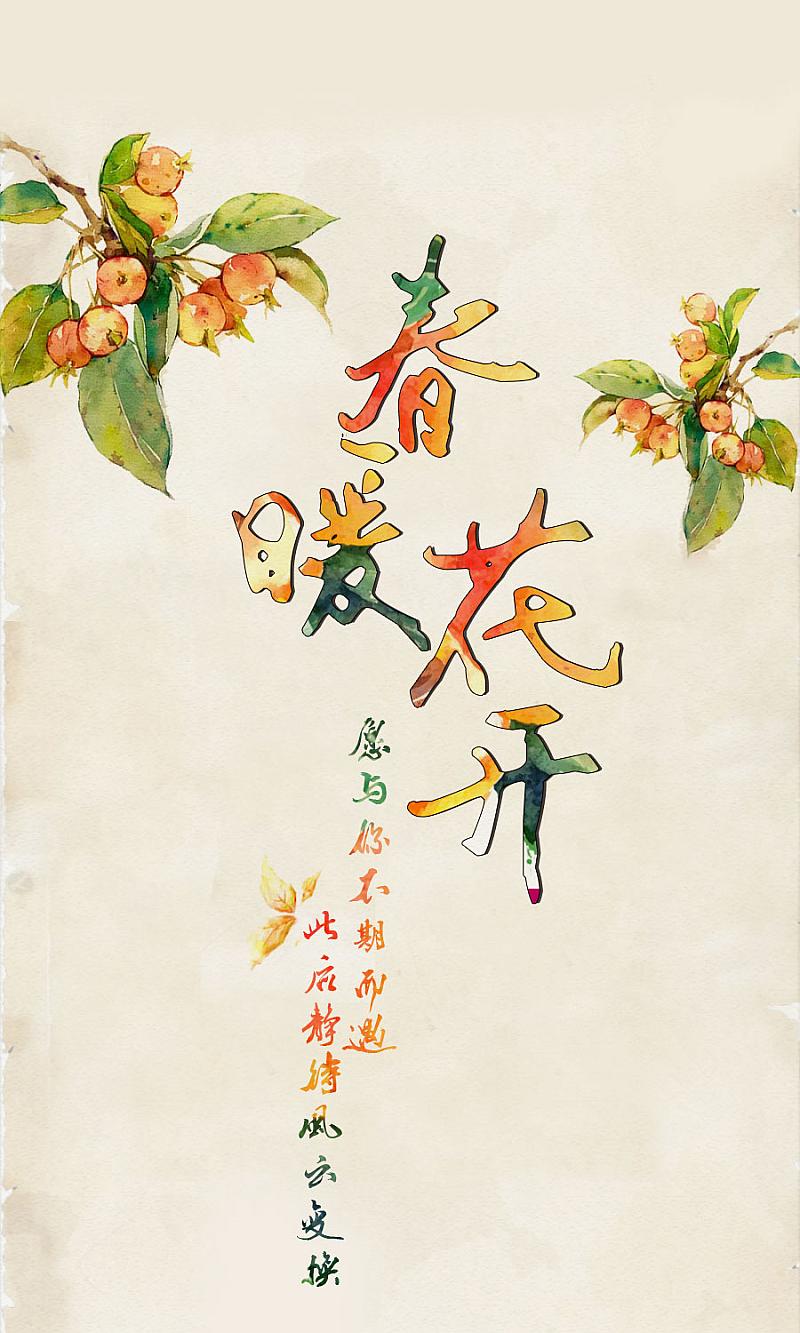 春暖
花开
愿与你不期而遇
此后静待风云变换